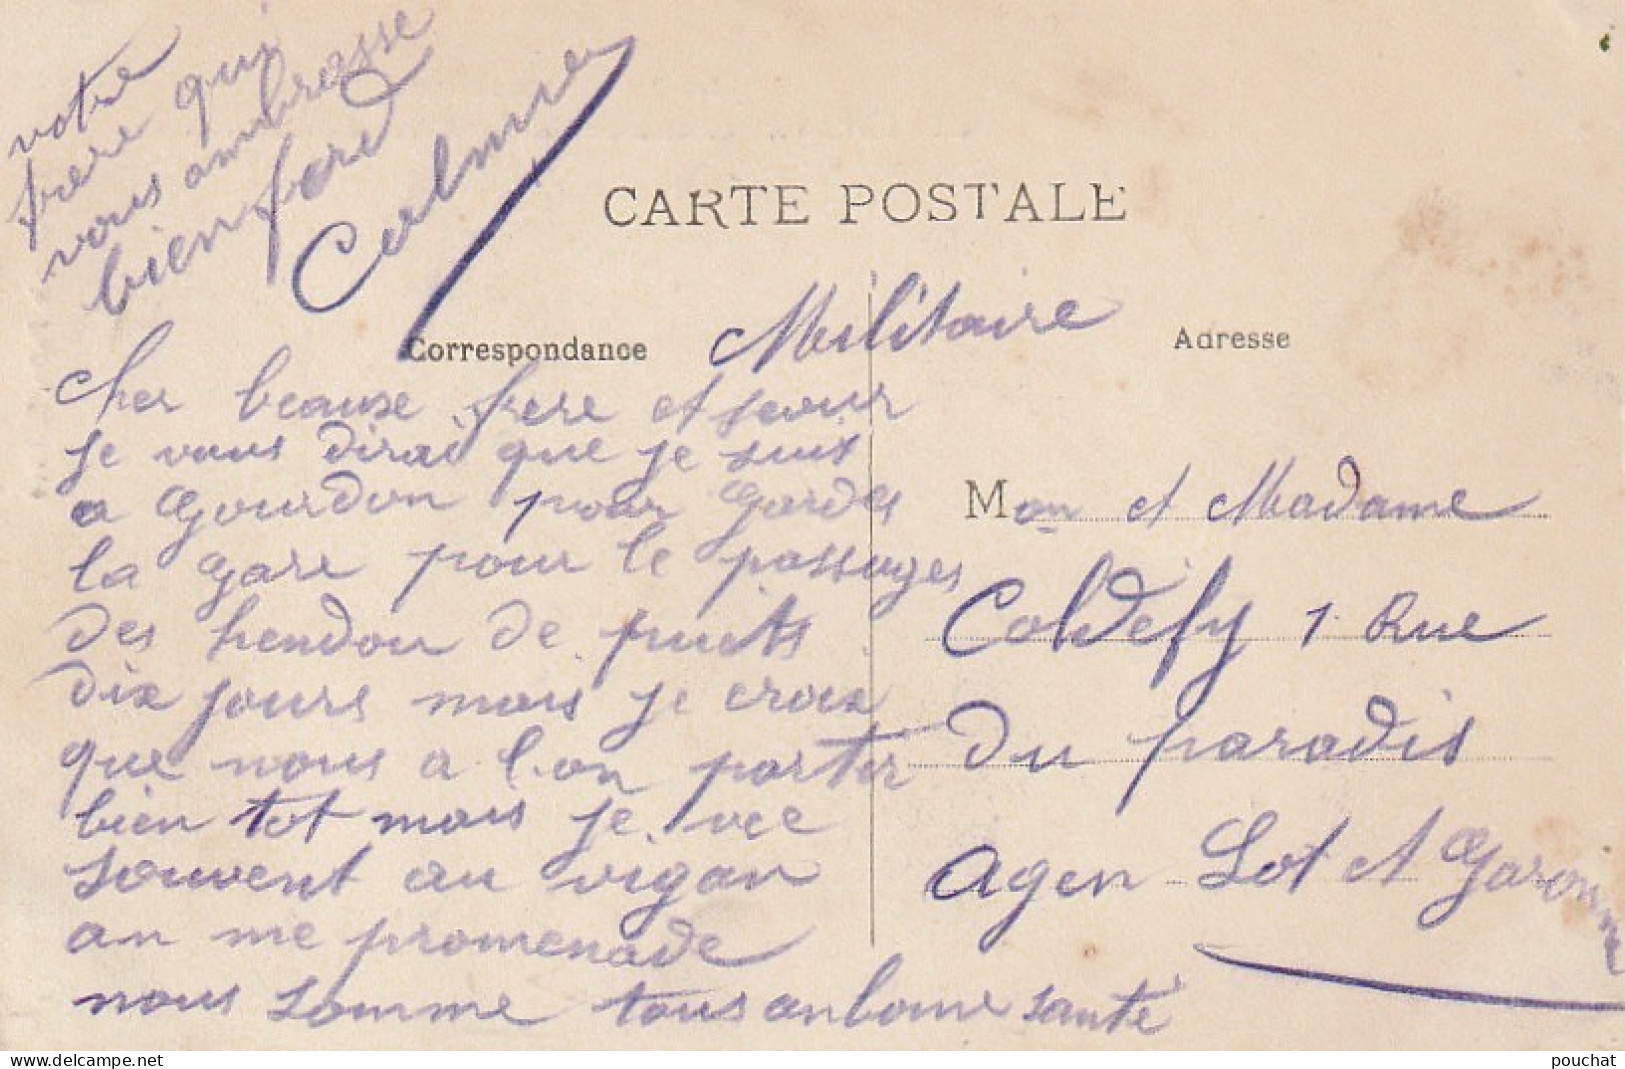 votre
frere qui
vous ambrasse
bien ford
Calmer
CARTE POSTALE
Correspondance
Militaire
Adresse
Cher beause frere et seour
je vous dirai que je suis
a Gourdon pour Gardes
la Gare pour le passages
des
de puits
dix jours mais je croix
que nous a l'on partir
bien tot mais je vee
souvent au vigan
an me promenade
nous somme tous an bonne santé
Mon et Madame
Coldefy 1 Rue
du paradis
agen Lot et Garonne
pouchat